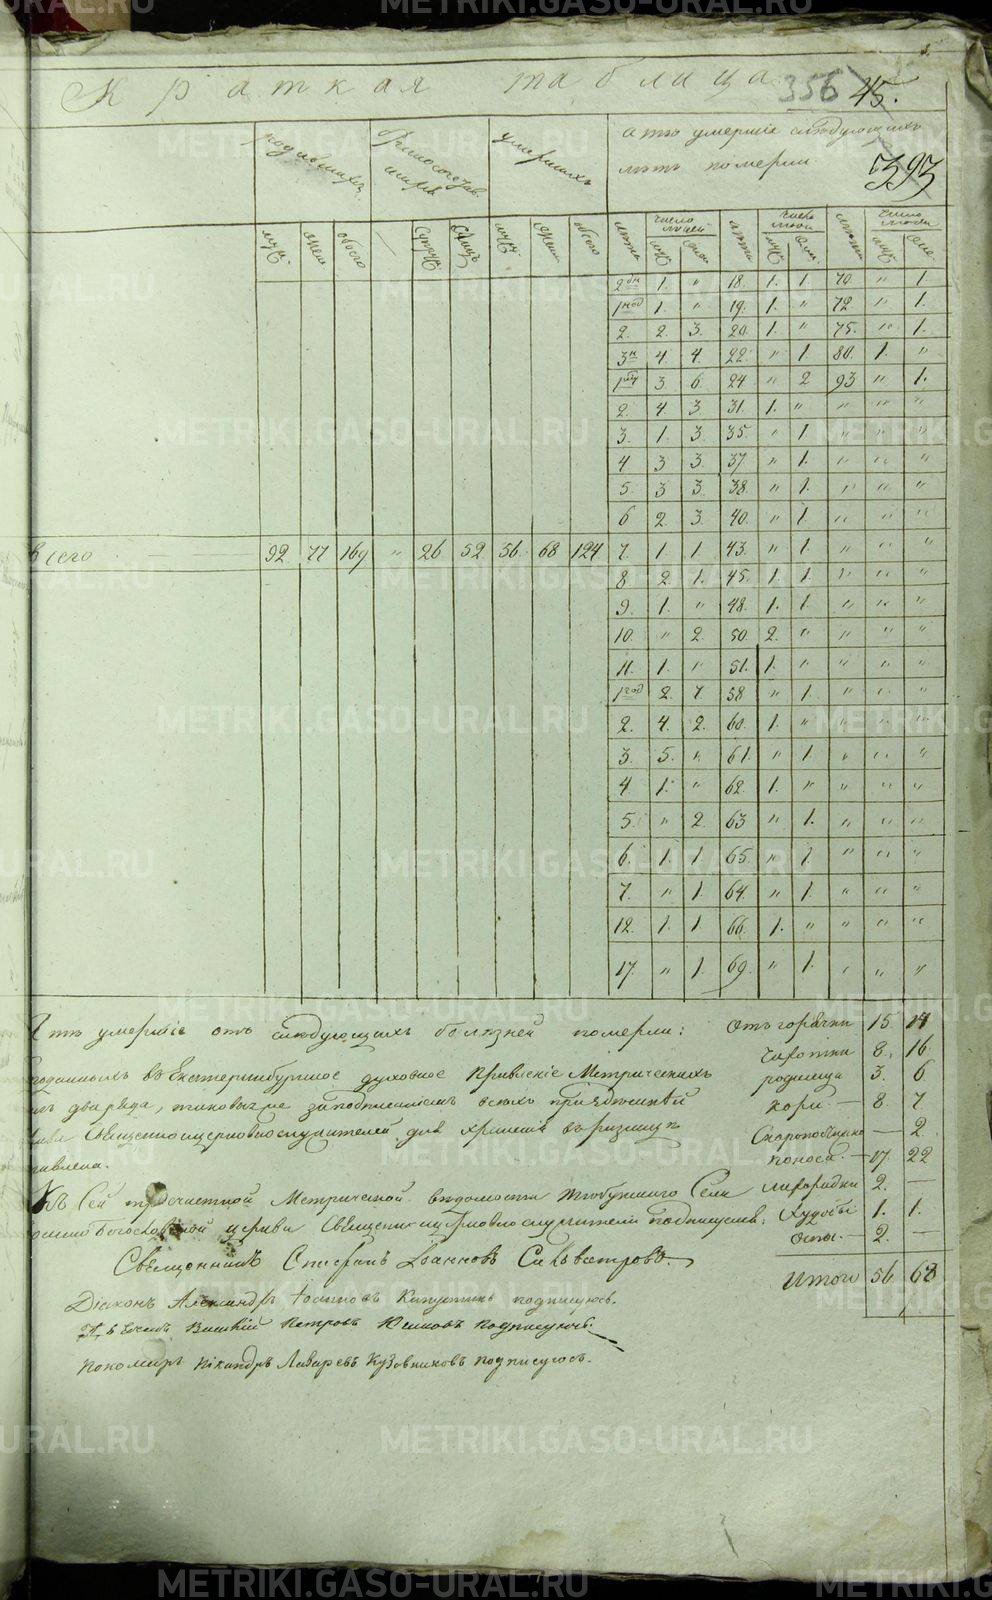 Краткая таблица 356 45.
родившихся
умершихъ
а те умершіе слѣдующихъ
лѣтъ померли
393
муж. жен. всего муж. жен. всего лѣта число людей муж. жен. лѣта число люд. муж. жен. лѣта число людей муж. жен.
2 1. " 18. 1. 1. 70. " 1.
1 1. " 19. 1. " 72 " 1.
2. 2. 3. 20. 1. " 75. " 1.
3 4. 4. 22. " 1. 80. 1. "
1 3 6. 24 " 2 93 " 1.
2. 4 3. 31. 1. " " " "
3. 1. 3. 35. " 1. " " "
4 3 3. 37. " 1. " " "
5. 3 3. 38. " 1. " " "
6 2. 3. 40. " 1. " " "
Всего 92 77 169 " 26 52 56. 68 124 7. 1 1. 43. " 1. " " "
8 2. 1. 45. 1. 1. " " "
9 1. " 48. 1. 1. " " "
10. " 2. 50. 2. " " " "
11. 1. " 51. 1. " " " "
1год 2. 7. 58 " 1. " " "
2. 4. 2. 60. 1. " " " "
3. 5. " 61. " 1. " " "
4 1. " 62. 1. " " " "
5. " 2. 63 " 1. " " "
6. 1. 1. 65. " 1. " " "
7. " 1. 64. " 1. " " "
12. 1. 1. 66. 1. " " " "
17. " 1. 69. " 1. " " "
А те умершіе отъ слѣдующихъ болѣзней померли: Отъ горячки 15. 14
Чахотки 8. 16.
въ Екатеринбургское духовное Правленіе Метрическихъ родимца 3. 6
два ряда, таковые за подписаніемъ всѣхъ кори. — 8. 7
Священноцерковнослужителей для храненія въ ризницѣ — 2
поноса. — 17. 22
Къ Сей Метрической вѣдомости Села лихорадки 2. —
Богословской церкви Священноцерковнослужители подписуемся: Худобы 1. 1.
оспы. — 2. —
Священникъ Стефанъ Іоанновъ Сильвестровъ. Итого 56. 68
Діаконъ Александръ Іосифовъ Капустинъ подписуюсь.
Василій Петровъ подписуюсь.
Пономарь Никандръ Лазаревъ Кузовниковъ подписуюсь.
METRIKI.GASO-URAL.RU